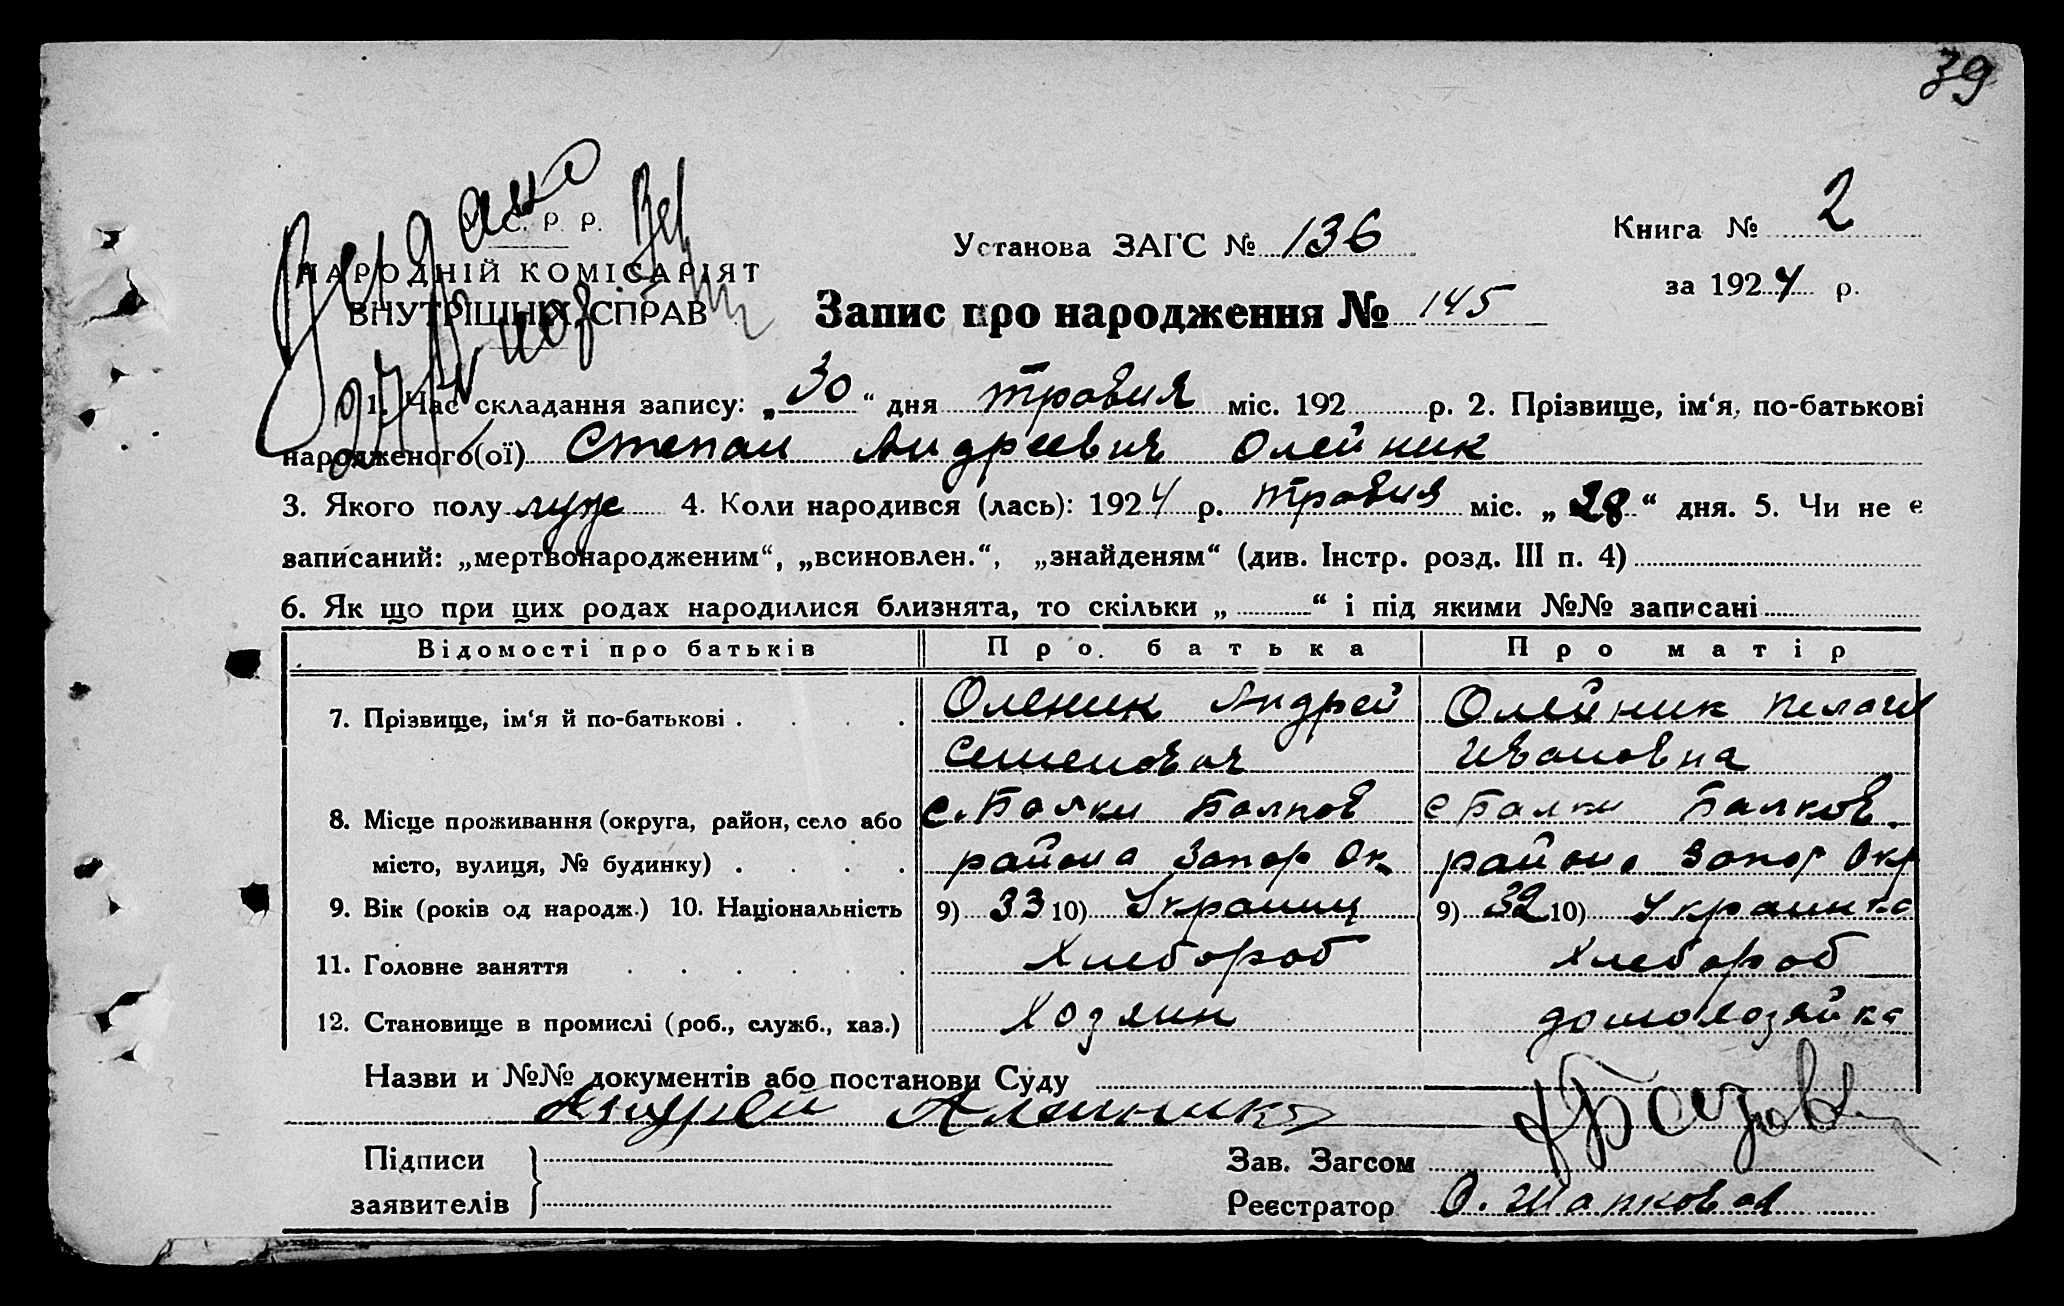 39
С. Р. Р.
НАРОДНІЙ КОМІСАРІЯТ
ВНУТРІШНІХ СПРАВ
Установа ЗАГС № 136
Книга № 2
за 1924 р.
Запис про народження № 145
1. Час складання запису: „30“ дня травня міс. 192 р. 2. Прізвище, ім‘я, по-батькові
народженого(ої) Степан Андреевич Олейник
3. Якого полу муж 4. Коли народився (лась): 1924 р. травня міс. „28“ дня. 5. Чи не є
записаний: „мертвонародженим“, „всиновлен.“, „знайденям“ (див. Інстр. розд. III п. 4)
6. Як що при цих родах народилися близнята, то скільки „ “ і під якими №№ записані
Відомості про батьків Про батька Про матір
7. Прізвище, ім‘я й по-батькові Оленик Андрей Олейник Пелагея
Семенович Ивановна
8. Місце проживання (округа, район, село або с. Балки Балков с Балки Балков.
місто, вулиця, № будинку) района Запор Ок района Запор Окр
9. Вік (років од народж.) 10. Національність 9) 33 10) Украинц 9) 32 10) Украинка
11. Головне заняття Хлебороб Хлебороб
12. Становище в промислі (роб., служб., хаз.) Хозяин домохозяйка
Назви и №№ документів або постанови Суду
Андрей Алейник
Підписи
заявителів
Зав. Загсом
Реєстратор О. Шаповал